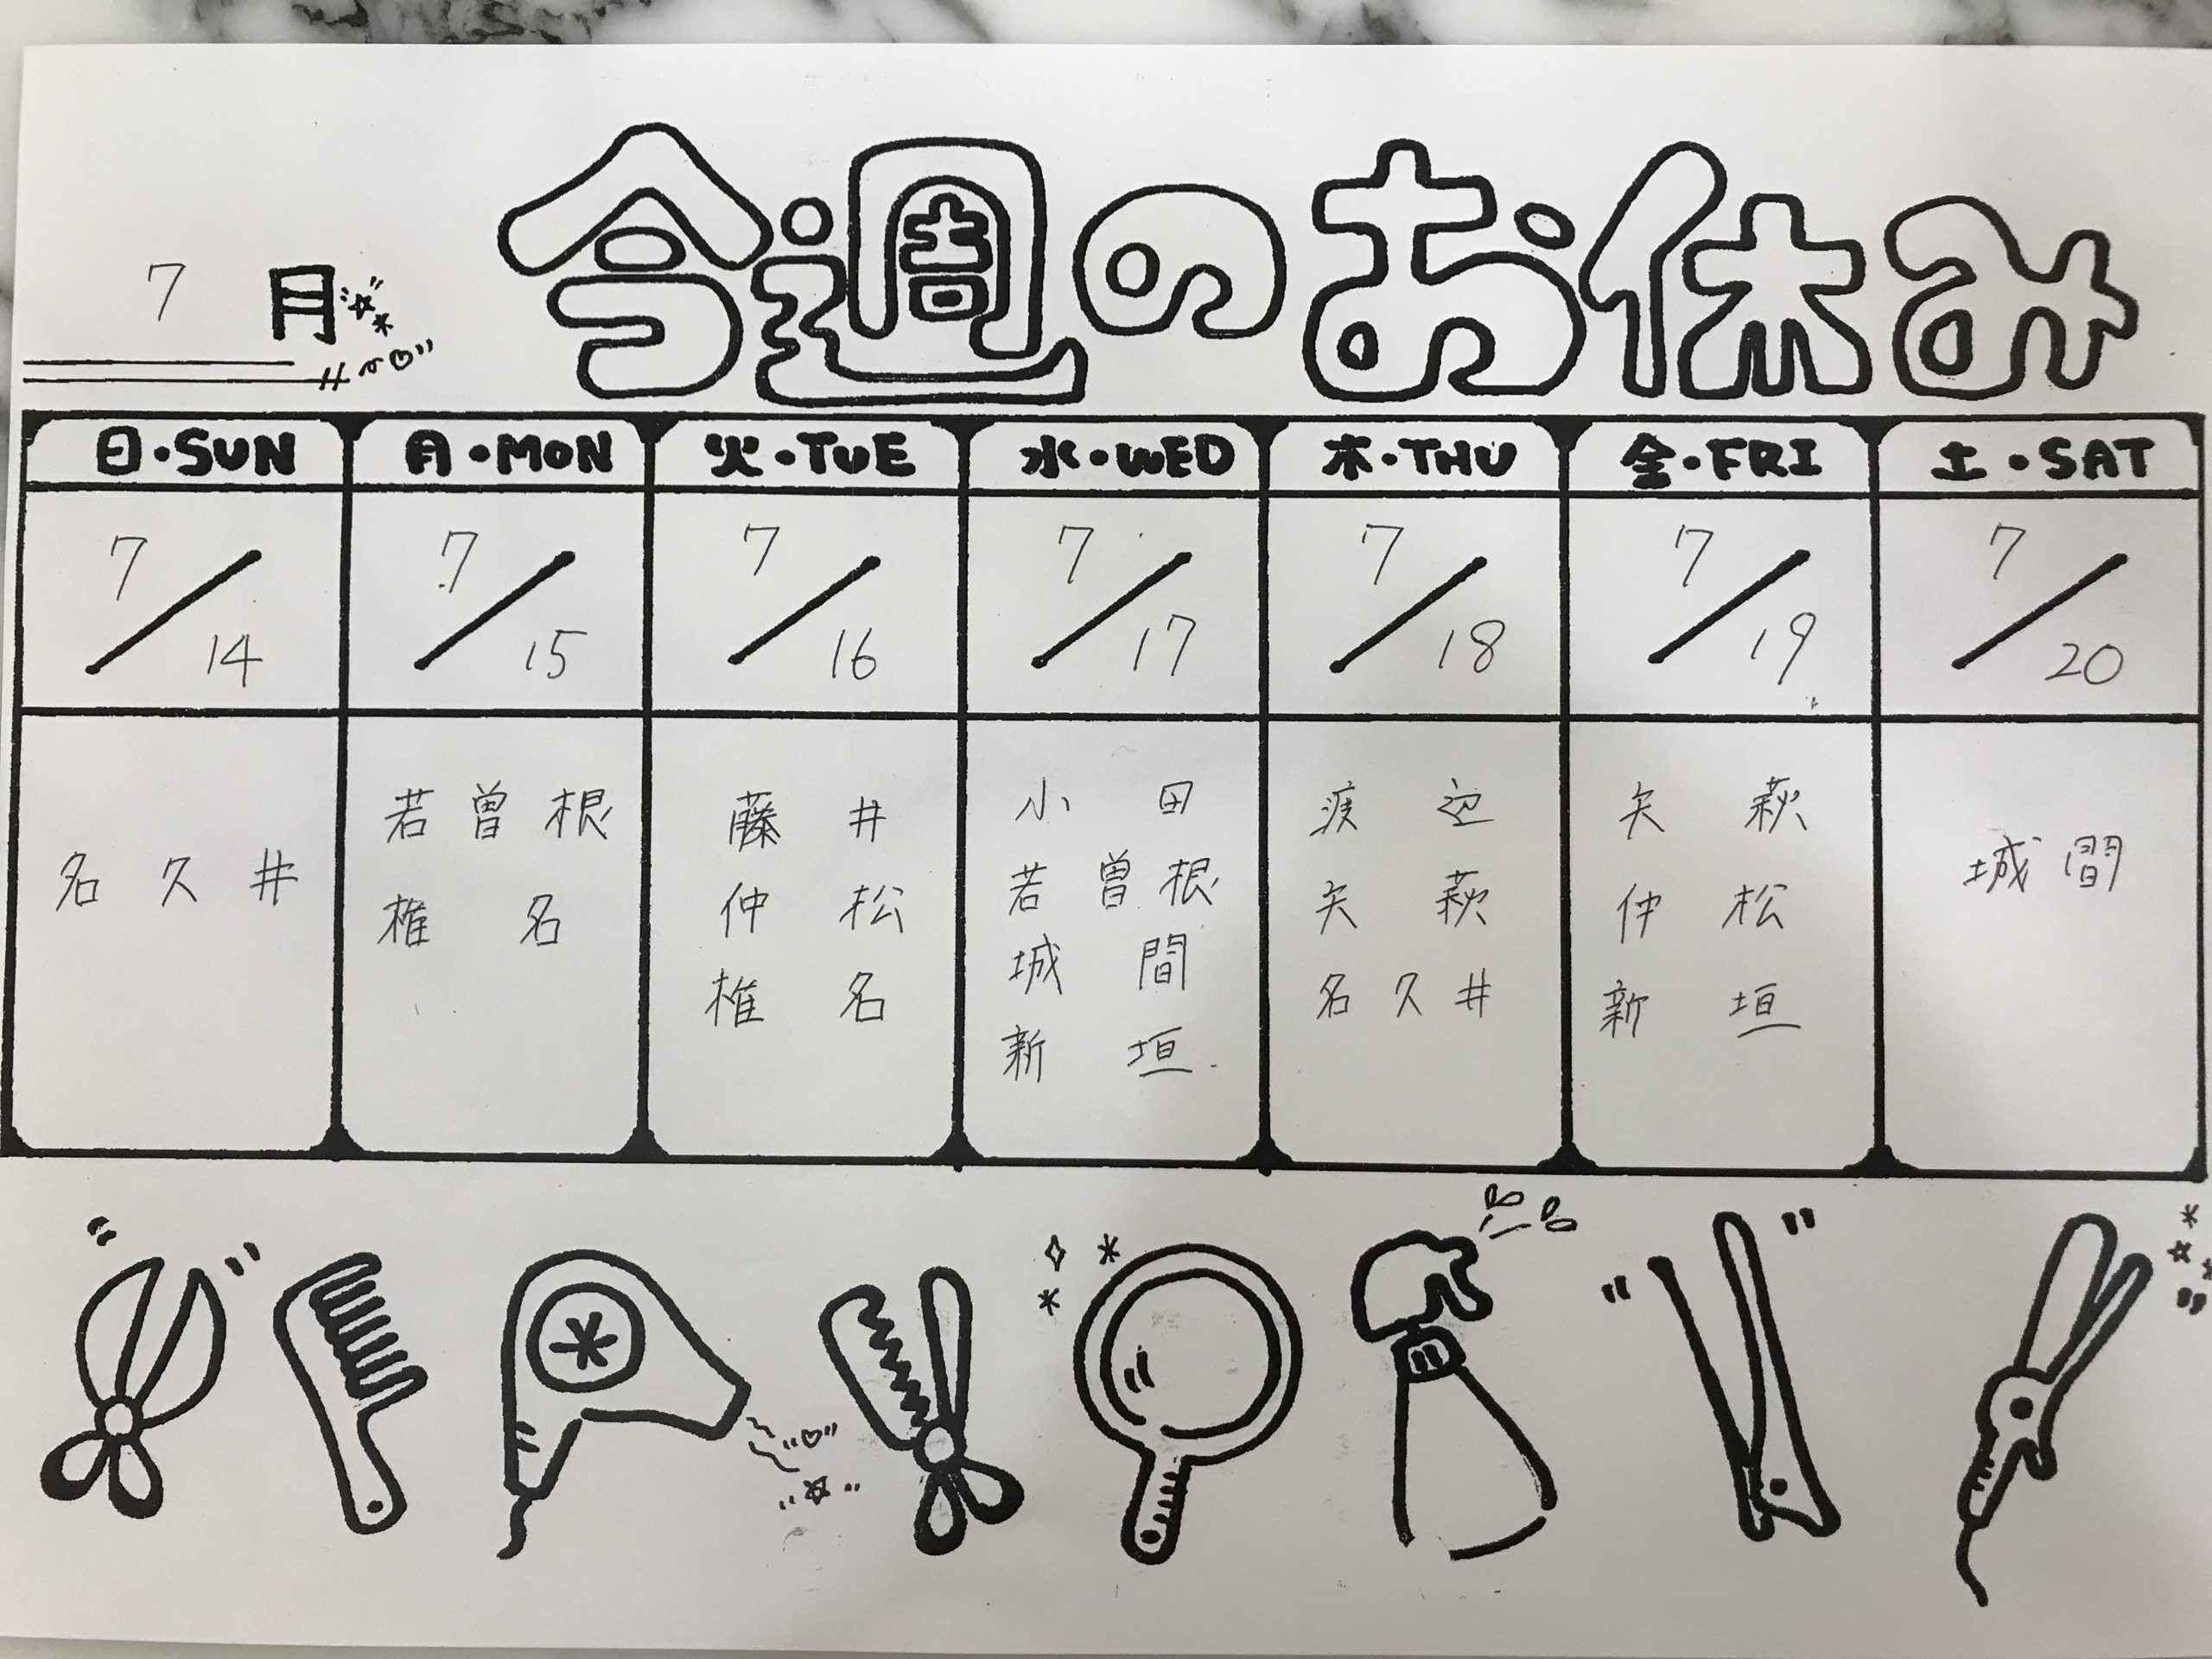 今週のお休み
7月
日・SUN 月・MON 火・TUE 水・WED 木・THU 金・FRI 土・SAT
7/14 7/15 7/16 7/17 7/18 7/19 7/20
名久井
若曽根
椎名
藤井
仲松
椎名
小田
若曽根
城間
新垣
渡辺
矢萩
名久井
矢萩
仲松
新垣
城間